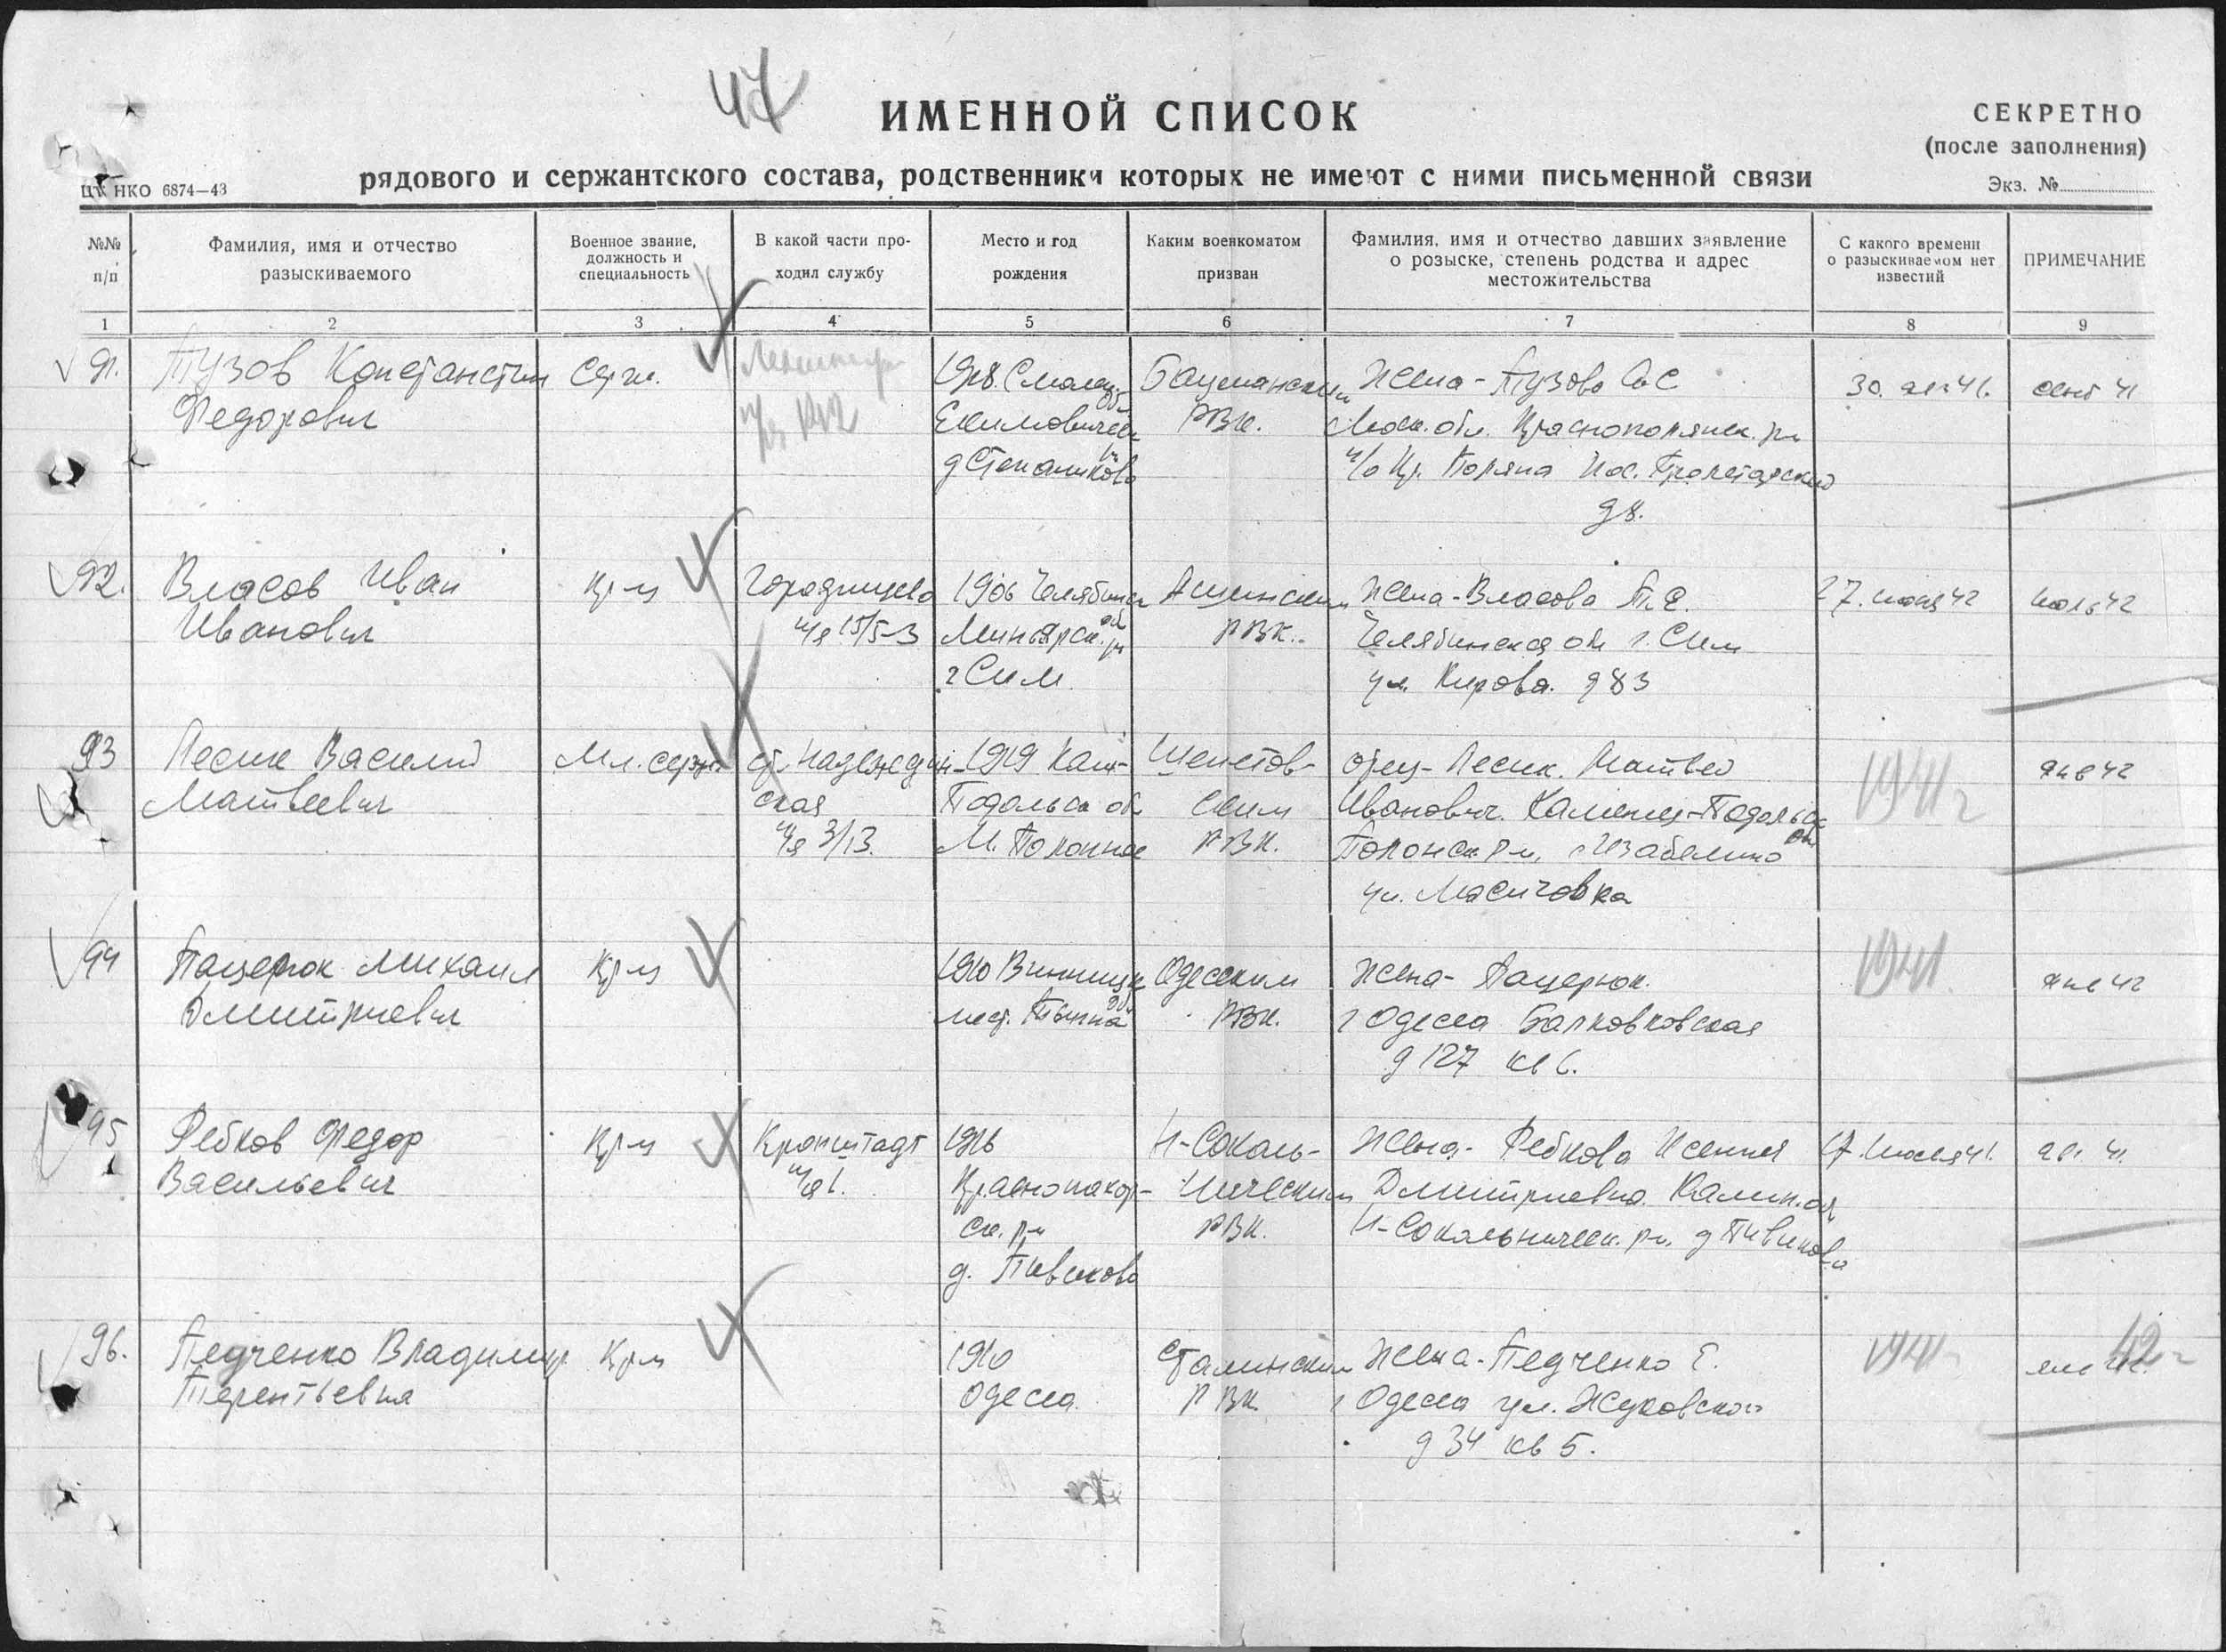 47
ИМЕННОЙ СПИСОК
СЕКРЕТНО
(после заполнения)
Экз. №
ЦТ НКО 6874—43
рядового и сержантского состава, родственники которых не имеют с ними письменной связи
№№ п/п
Фамилия, имя и отчество разыскиваемого
Военное звание, должность и специальность
В какой части проходил службу
Место и год рождения
Каким военкоматом призван
Фамилия, имя и отчество давших заявление о розыске, степень родства и адрес местожительства
С какого времени о разыскиваемом нет известий
ПРИМЕЧАНИЕ
1 2 3 4 5 6 7 8 9
91. Пузов Константин Серж. Бауманским Жена - Пузова 30. авг 41. сент 41
Федорович РВК. Моск. обл. Краснополянск. рн
д Степаников п/о Кр. Поляна пос. Пролетарский
д 8.
92. Власов Иван Кр-ц Городищево 1906 Челябинск Ашинским Жена - Власова П.Е. 27. июня 42 июль 42
Иванович п/я 15/5-3 Миньярск. рн РВК. Челябинская обл г. Сим
г Сим ул. Кирова. д 83
93 Лесик Василий Мл. серж ст. Надеждин- 1919 Кам- Шепетов- отец - Лесик. Матвей 1941 г янв 42
Матвеевич ская Подольск об ским Иванович. Каменец-Подольск
п/я 3/13. М. Полонное РВК. Полонск р-н, Изабелино обл
ул. Масичовка
94 Пацерюк Михаил Кр-ц 1910 Винницк Одесским Жена - Пацерюк. 1941. янв 42
Дмитриевич мест. РВК. г Одесса Балковковская
д 127 кв 6.
95 Ребков Федор Кр-ц Кронштадт 1916 Н-Соколь- Жена - Ребкова Ксения 17. июля 41. авг 41.
Васильевич п/я 1. Красногор- ническим Дмитриевна. Калин. обл
ск. р-н РВК. Н-Сокольническ. рн. д Пивиково
д. Пивиково
96. Педченко Владимир Кр-ц 1910 Сталинским Жена - Педченко Е. 1941 янв 42
Терентьевич Одесса РВК г Одесса ул. Жуковского
д 34 кв 5.